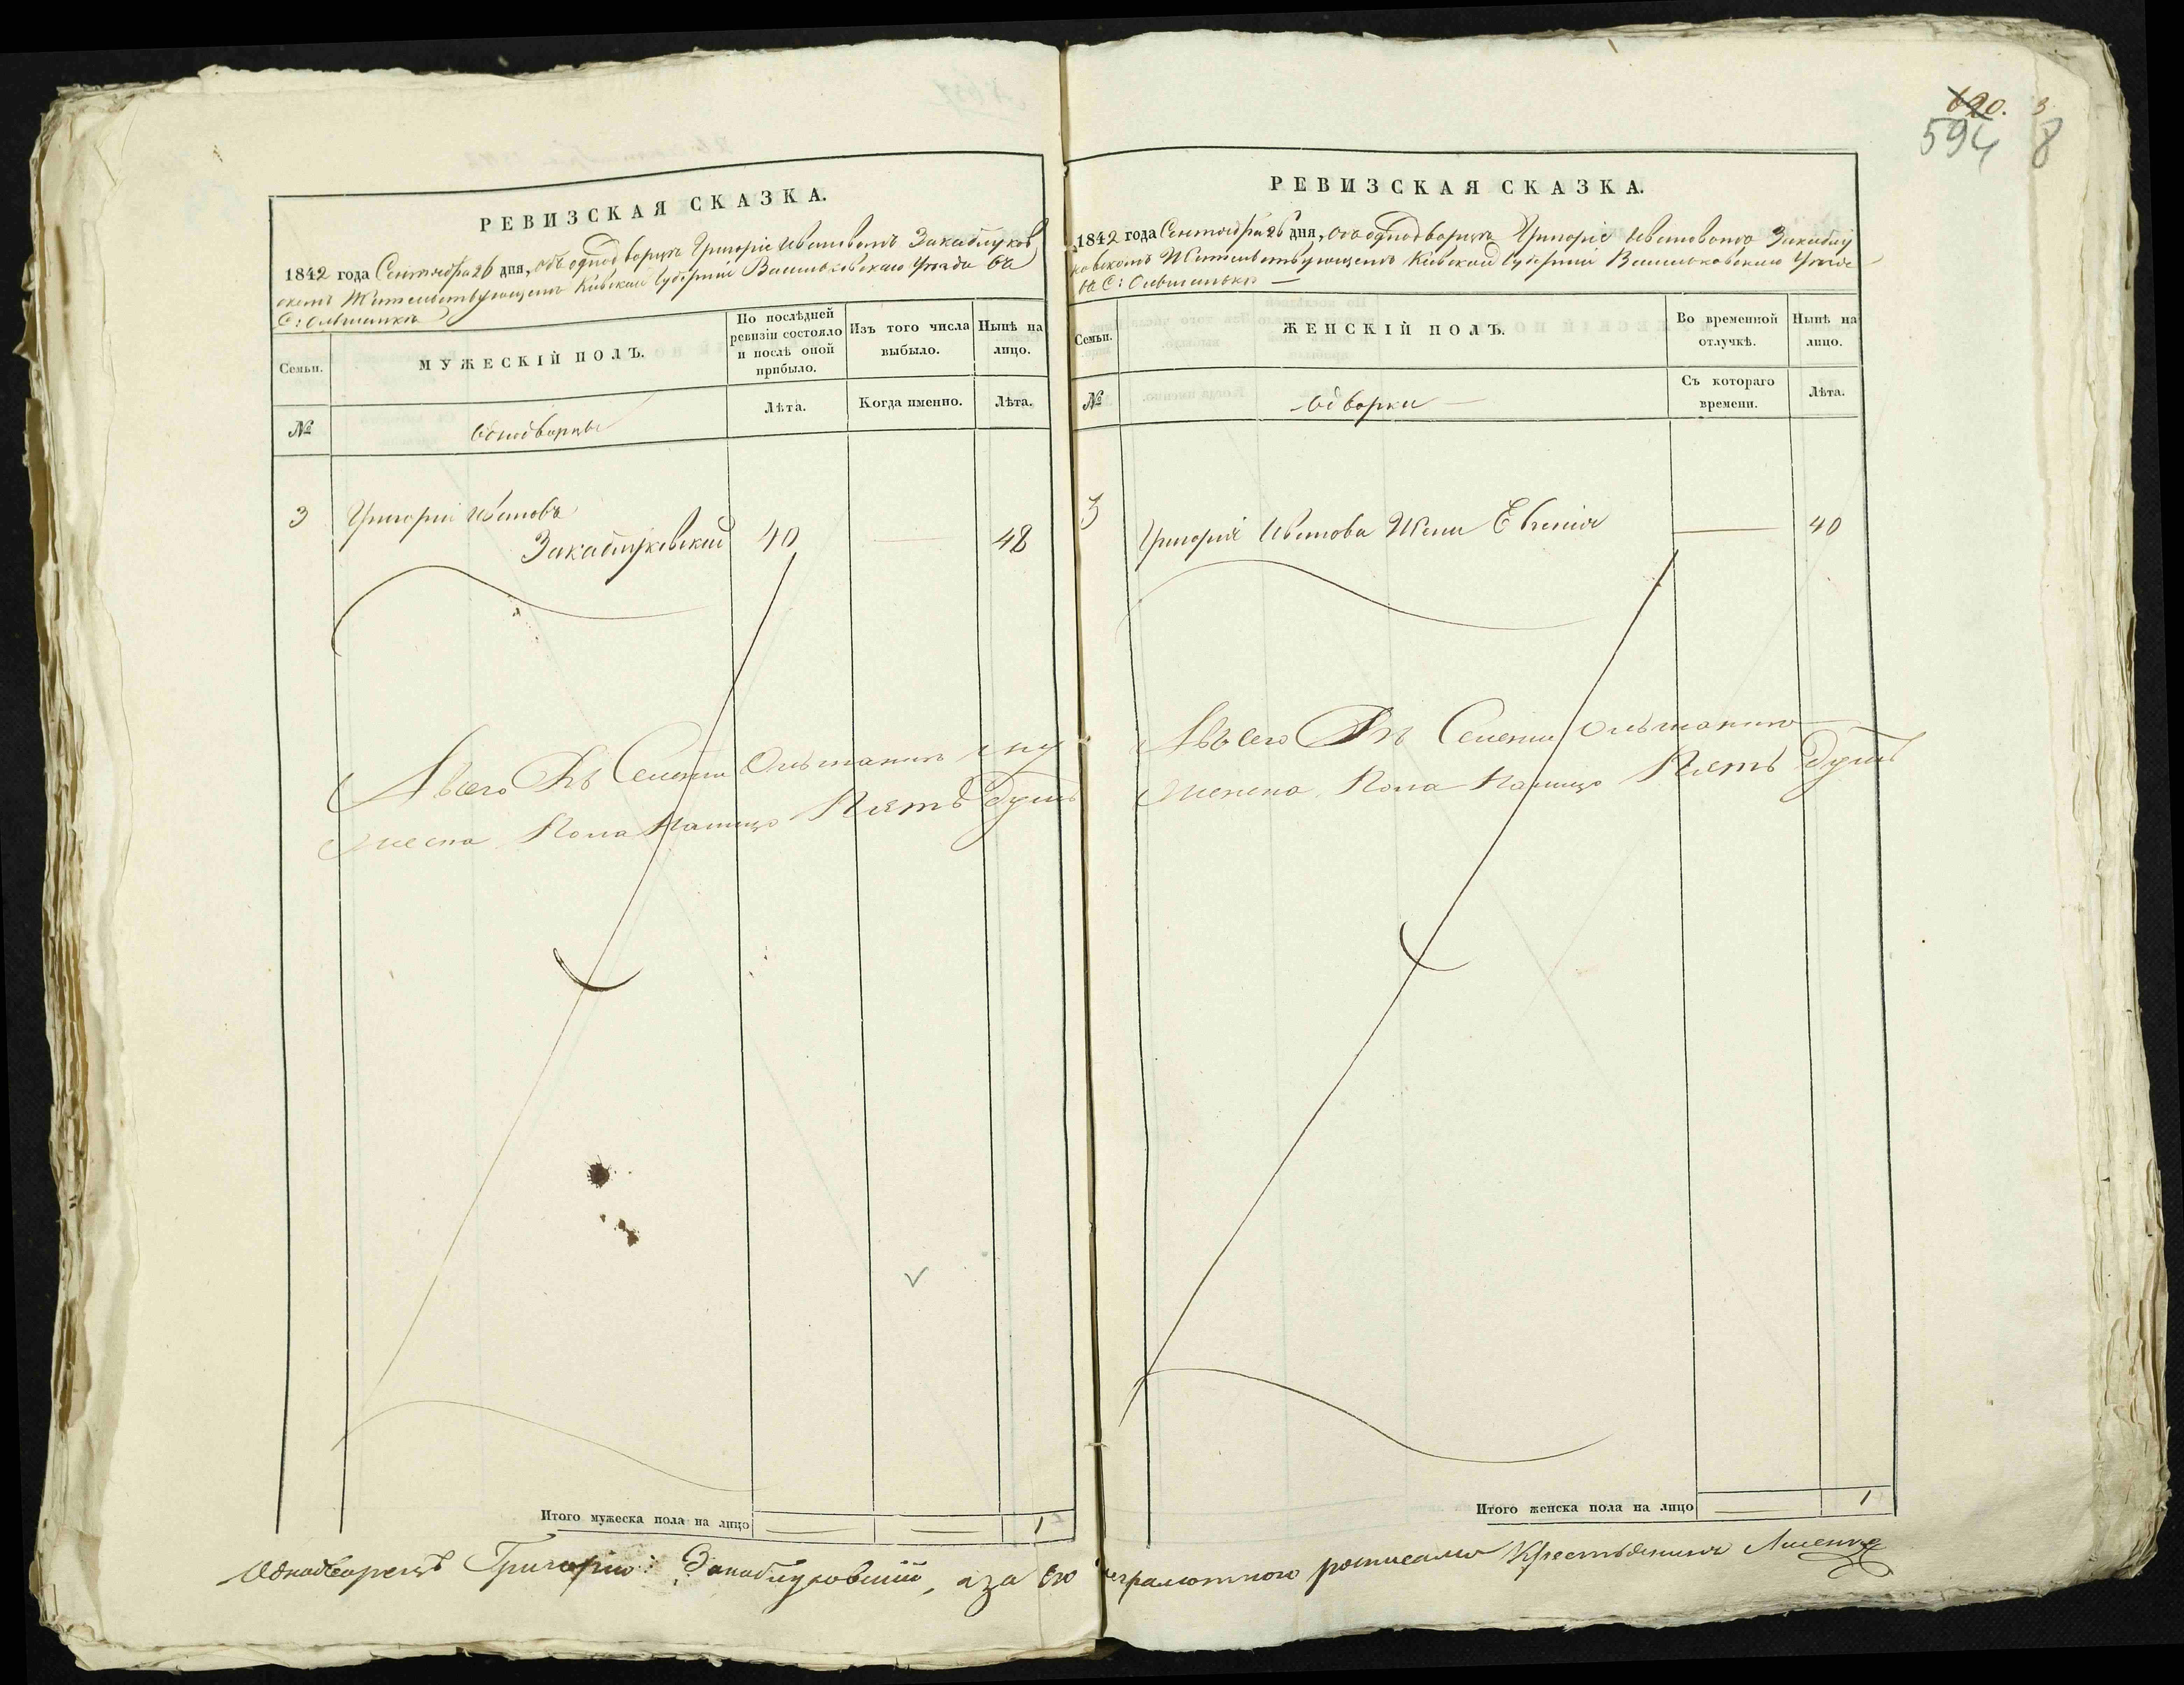 620. 3
594 8
РЕВИЗСКАЯ СКАЗКА.
1842 года Сентября 26 дня, объ однодворцѣ Григоріе Ивановомъ Закаблуков
скомъ Жительствующемъ Кіевской Губерніи Васильковскаго Уѣзда въ
С: Ольшанкѣ
Семьи.
МУЖЕСКІЙ ПОЛЪ.
По послѣдней ревизіи состояло и послѣ оной прибыло.
Изъ того числа выбыло.
Нынѣ на лицо.
№
Однодворцы
Лѣта.
Когда именно.
Лѣта.
3 Григорій Ивановъ
Закаблуковскій 40 — 48
А всего Въ Селеніи Ольшанкѣ му
жеска Пола Налицо Пять Душъ
Итого мужеска пола на лицо — — 1
РЕВИЗСКАЯ СКАЗКА.
1842 года Сентября 26 дня, объ однодворцѣ Григоріе Ивановомъ Закаблу
ковскомъ Жительствующемъ Кіевской Губерніи Васильковскаго Уѣзда
въ С: Ольшанкѣ —
Семьи.
ЖЕНСКІЙ ПОЛЪ.
Во временной отлучкѣ.
Нынѣ на лицо.
№
Съ котораго времени.
Лѣта.
3 Григорія Иванова Жена Евгенія — 40
А всего Въ Селеніи Ольшанкѣ
Женска Пола Налицо Пять Душъ
Итого женска пола на лицо — 1
Однодворецъ Григорій Закаблуковскій, а за его неграмотного росписался Крестьянинъ